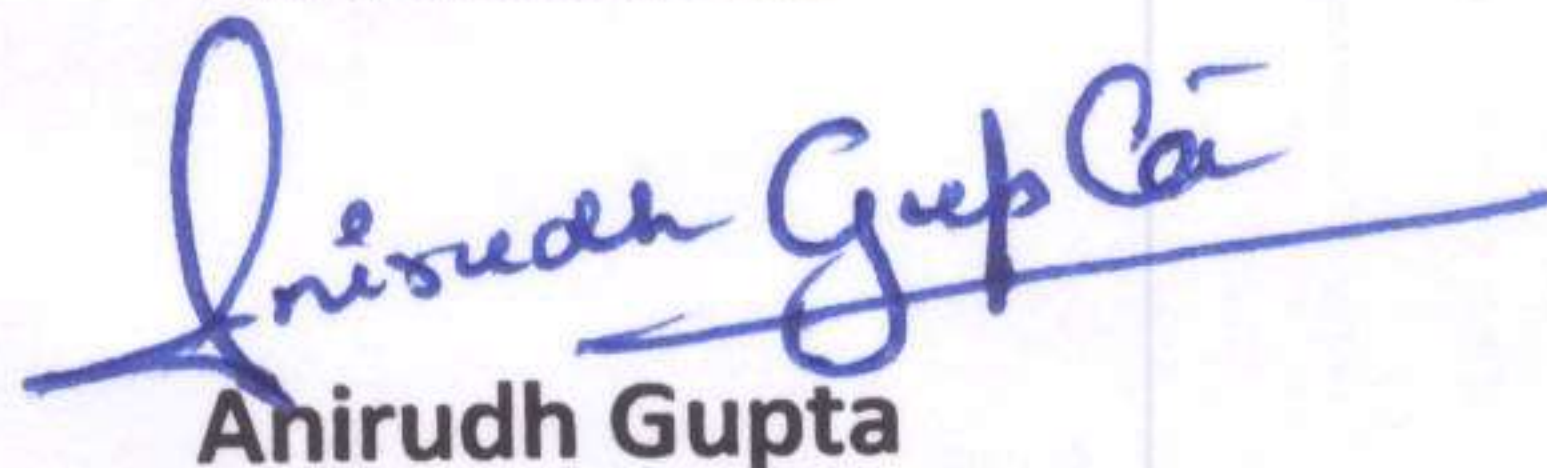 Anirudh Gupta
Anirudh Gupta